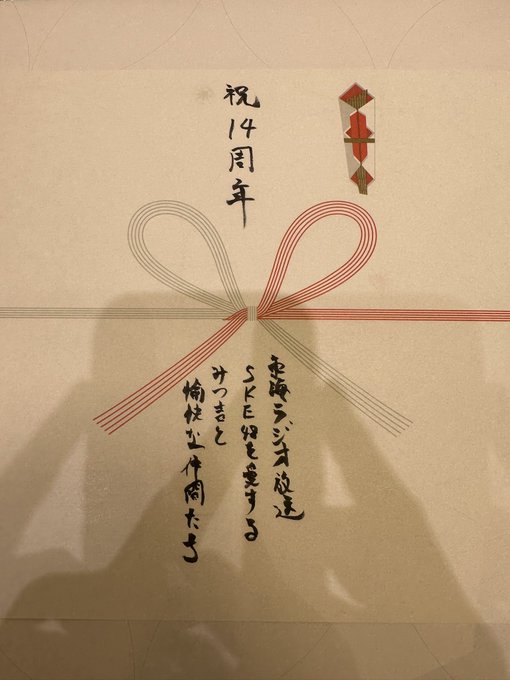 祝14周年
東海ラジオ放送
SKE48を愛する
みつ吉と
愉快な仲間たち